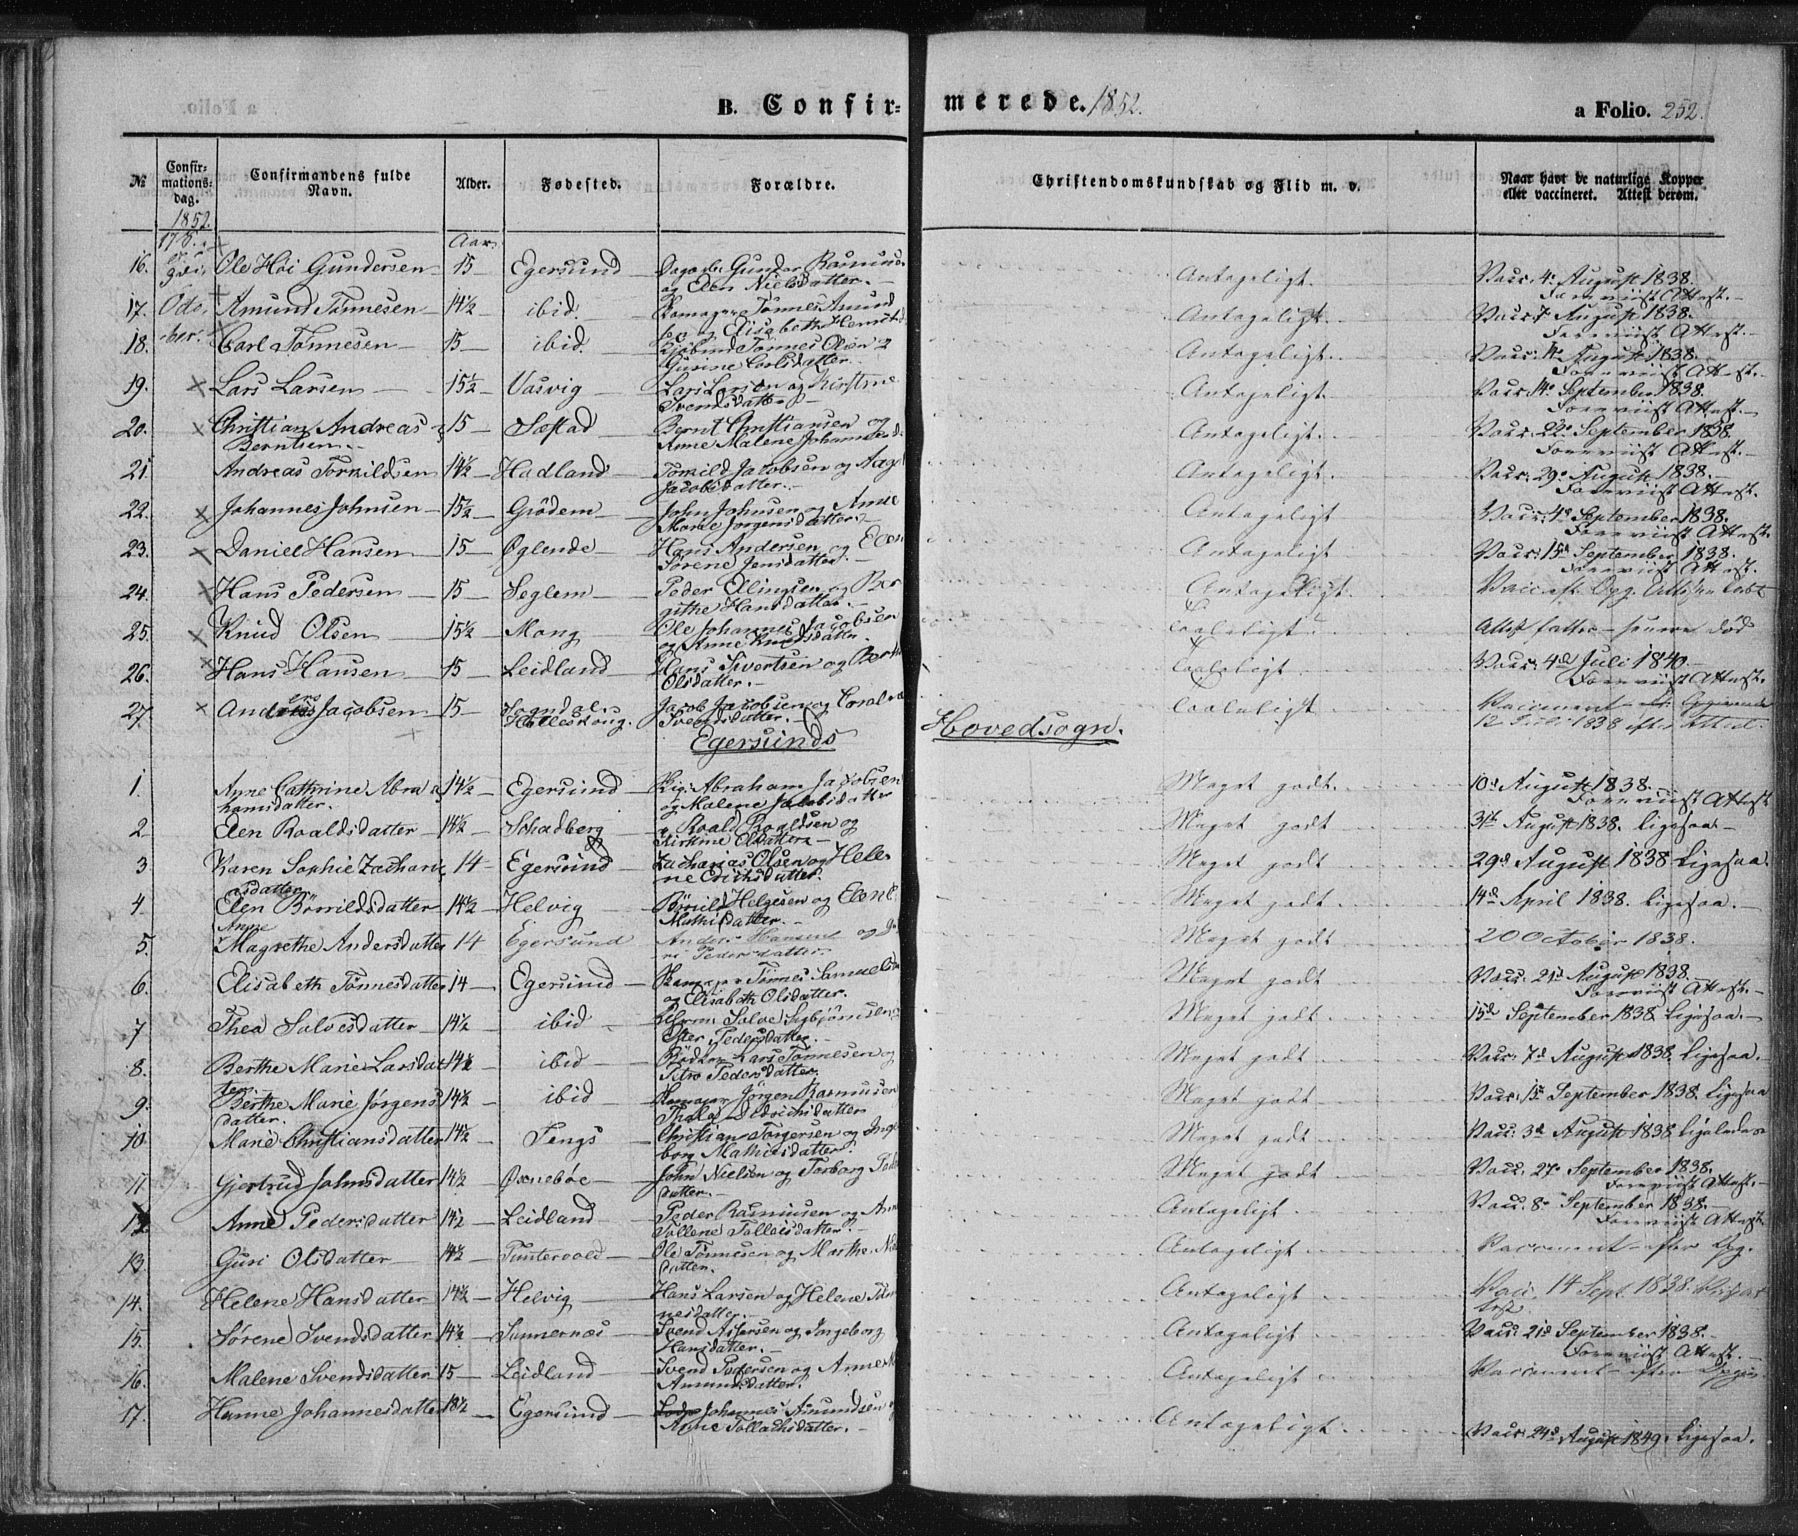 B. Confir-merede. 1852. a Folio. 252.
№ Confir-mations-dag. Confirmandens fulde Navn. Alder. Fødested. Forældre. Christendomskundskab og Flid m. v. Naar havt de naturlige Kopper eller vaccineret. Attest derom.
1852. Aar
16. Ole Høi Gundersen 15 Egersund Gunder og Elen Nielsdatter. Antageligt. Vacc. 4 August 1838. Foreviist Attest.
17. Amund Tønnesen 14½ ibid. Tønnes Amund og Elisabeth Antageligt. Vacc. 7 August 1838. Foreviist Attest.
18. Carl Tønnesen 15 ibid. Tønnes Olsen Gurine Carlsdatter Antageligt. Vacc. August 1838. Foreviist Attest.
19. Lars Larsen 15½ Vasvig Lars Larsen og Kirstine Svendsdatter Antageligt. Vacc. September 1838. Foreviist Attest.
20. Christian Andreas Berntsen 15 Sæstad Bernt Christiansen og Anne Malene Antageligt. Vacc. 22 September 1838. Foreviist Attest.
21. Andreas Torkildsen 14½ Hadland Torkild Jacobsen og Jacobsdatter. Antageligt. Vacc. 29 August 1838. Foreviist Attest.
22. Johannes Johnsen 15½ Grødem John Johnsen og Anne Marie Jørgensdatter. Antageligt Vacc. 4 September 1838. Foreviist Attest.
23. Daniel Hansen 15 Øglende Hans Andersen og Elen Sørene Jensdatter. Antageligt Vacc. 15 September 1838. Foreviist Attest.
24. Hans Pedersen 15 Seglem Peder Elingsen og Ber githe Hansdatter. Antageligt.
25. Knud Olsen 15½ Mong Ole Johannes Jacobsen og Anne Knudsdatter Taaleligt Attest
26. Hans Hansen 15 Leidland Hans Sivertsen og Berth Olsdatter. Taaleligt Vacc. 4 Juli 1840. Foreviist Attest.
27. Anders Jacobsen 15 Sogndal Jacob Jacobsen og Svendsdatter. Taaleligt 1838 efter Attest.
Egersunds Hovedsogn.
1. Anne Cathrine Abrahamsdatter. 14½ Egersund Abraham Jacobsen og Malene Jacobsdatter Meget godt. 10 August 1838. Foreviist Attest
2. Elen Roaldsdatter 14½ Schadberg Roald Roaldsen og Kirstine Meget godt 31 August 1838. ligesaa
3 Karen Sophie Zacharie sdatter 14 Egersund Zacharias Olsen og Hele ne Meget godt 29 August 1838 Ligesaa.
4 Elen Børrildsdatter 14½ Helvig Børrild Helgesen og Elene Mathisdatter. Meget godt 14 April 1838. Ligesaa.
5. Anne Magrethe Andersdatter 14 Egersund Anders Hansen og Pedersdatter. Meget godt 20 October 1838.
6. Elisabeth Tønnesdatter 14 Egersund Tønnes Samuelsen og Elisabeth Olsdatter. Meget godt Vacc. 21 August 1838. Foreviist Attest.
7 Thea Salvesdatter 14½ ibid Salve Sigbjørnsen Ester Pedersdatter. Meget godt 15 September 1838 Ligesaa.
8. Berthe Marie Larsdatter. 14½ ibid Bødker Lars Tønnesen og Petro Pedersdatter. Meget godt Vacc. 7 August 1838. Ligesaa.
9. Berthe Marie Jørgensdatter. 14½ ibid Jørgen Rasmusen Meget godt Vacc. 15 September 1838. Ligesaa
10. Marie Christiansdatter 14½ Tengs Christian Torgersen og Inge borg Mathiesdatter. Meget godt Vacc. 3 August 1838
11. Gjertrud Johnsdatter 14½ Øxnebøe John Nielsen og Torborg Peder datter. Meget godt Vacc. 27 September 1838. Foreviist Attest.
12. Anne Pedersdatter 14½ Leidland Peder Rasmusen og Anne Tollene Tolleisdatter. Antageligt Vacc. 8 September 1838. Foreviist Attest.
13. Guri Olsdatter 14½ Tuntervold Ole Tønnesen og Marthe datter. Antageligt
14. Helene Hansdatter 14½ Helvig Hans Larsen og Helene Tøn nesdatter. Antageligt Vacc. 14 Sept. 1838.
15. Sørene Svendsdatter 14½ Sunnernæs Svend Assersen og Ingeborg Hansdatter. Antageligt Vacc. 21 September 1838. Foreviist Attest.
16. Malene Svendsdatter 15 Leidland Svend Pedersen og Anne Amundsdatter. Antageligt
17. Hanne Johannesdatter 18½ Egersund Johannes Amundsen og Anne Tollachsdatter. Antageligt. Vacc. 24 August 1849. Ligesaa.